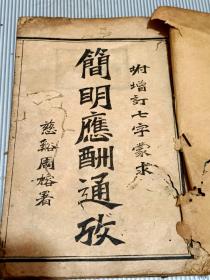 附增訂七字蒙求
簡明應酬通攷
慈谿周榕署